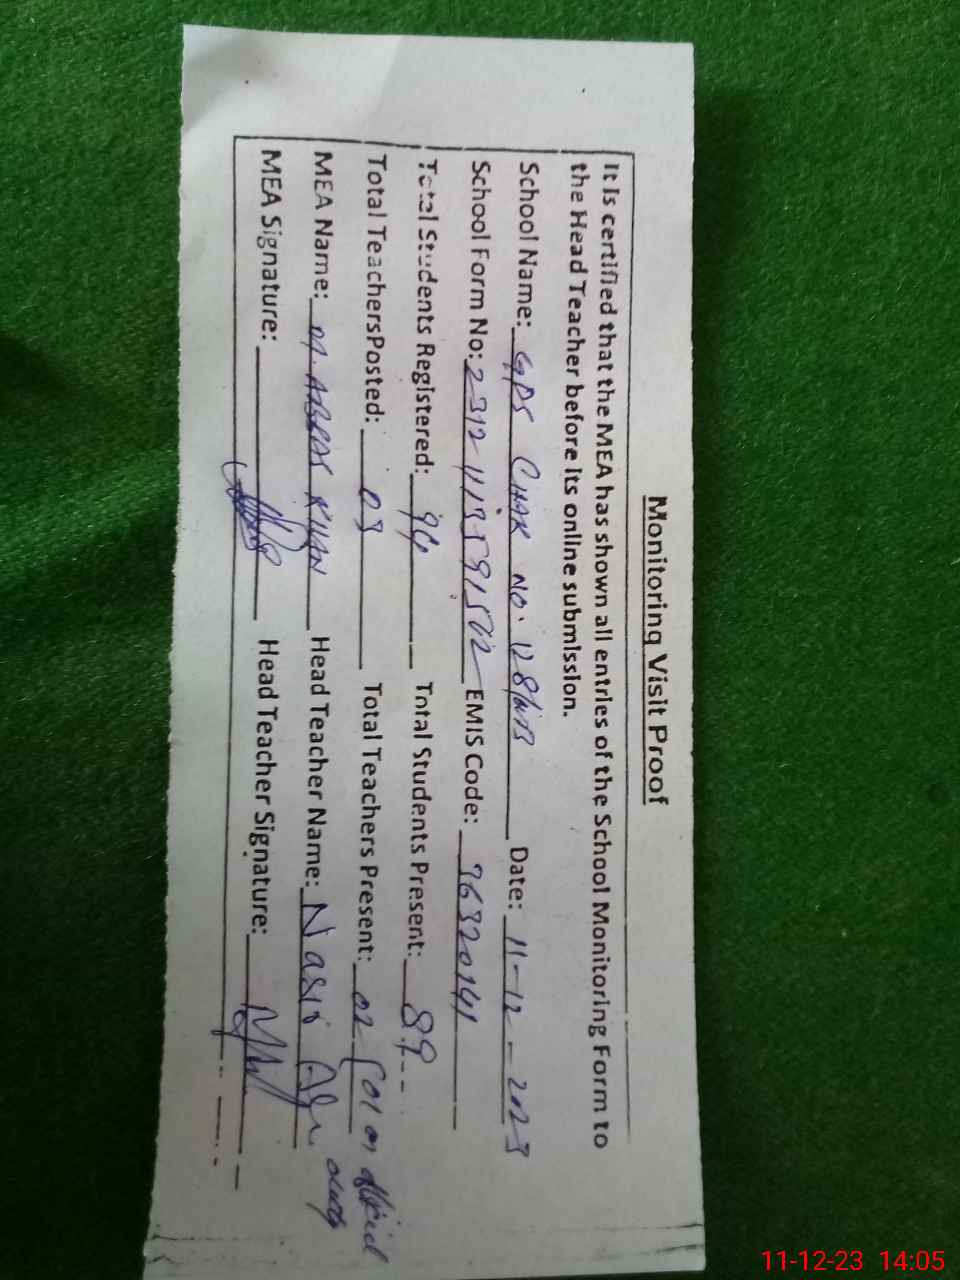 Monitoring Visit Proof
It is certified that the MEA has shown all entries of the School Monitoring Form to
the Head Teacher before its online submission.
School Name: GPS CHAK NO. 128/WB Date: 11-12-2023
School Form No: EMIS Code: 76320141
Total Students Registered: 94 Total Students Present: 89
Total Teachers Posted: 03 Total Teachers Present: 02 (01 on official duty
MEA Name: M. ABBAS KHAN Head Teacher Name: Nasir
MEA Signature: Head Teacher Signature:
11-12-23 14:05